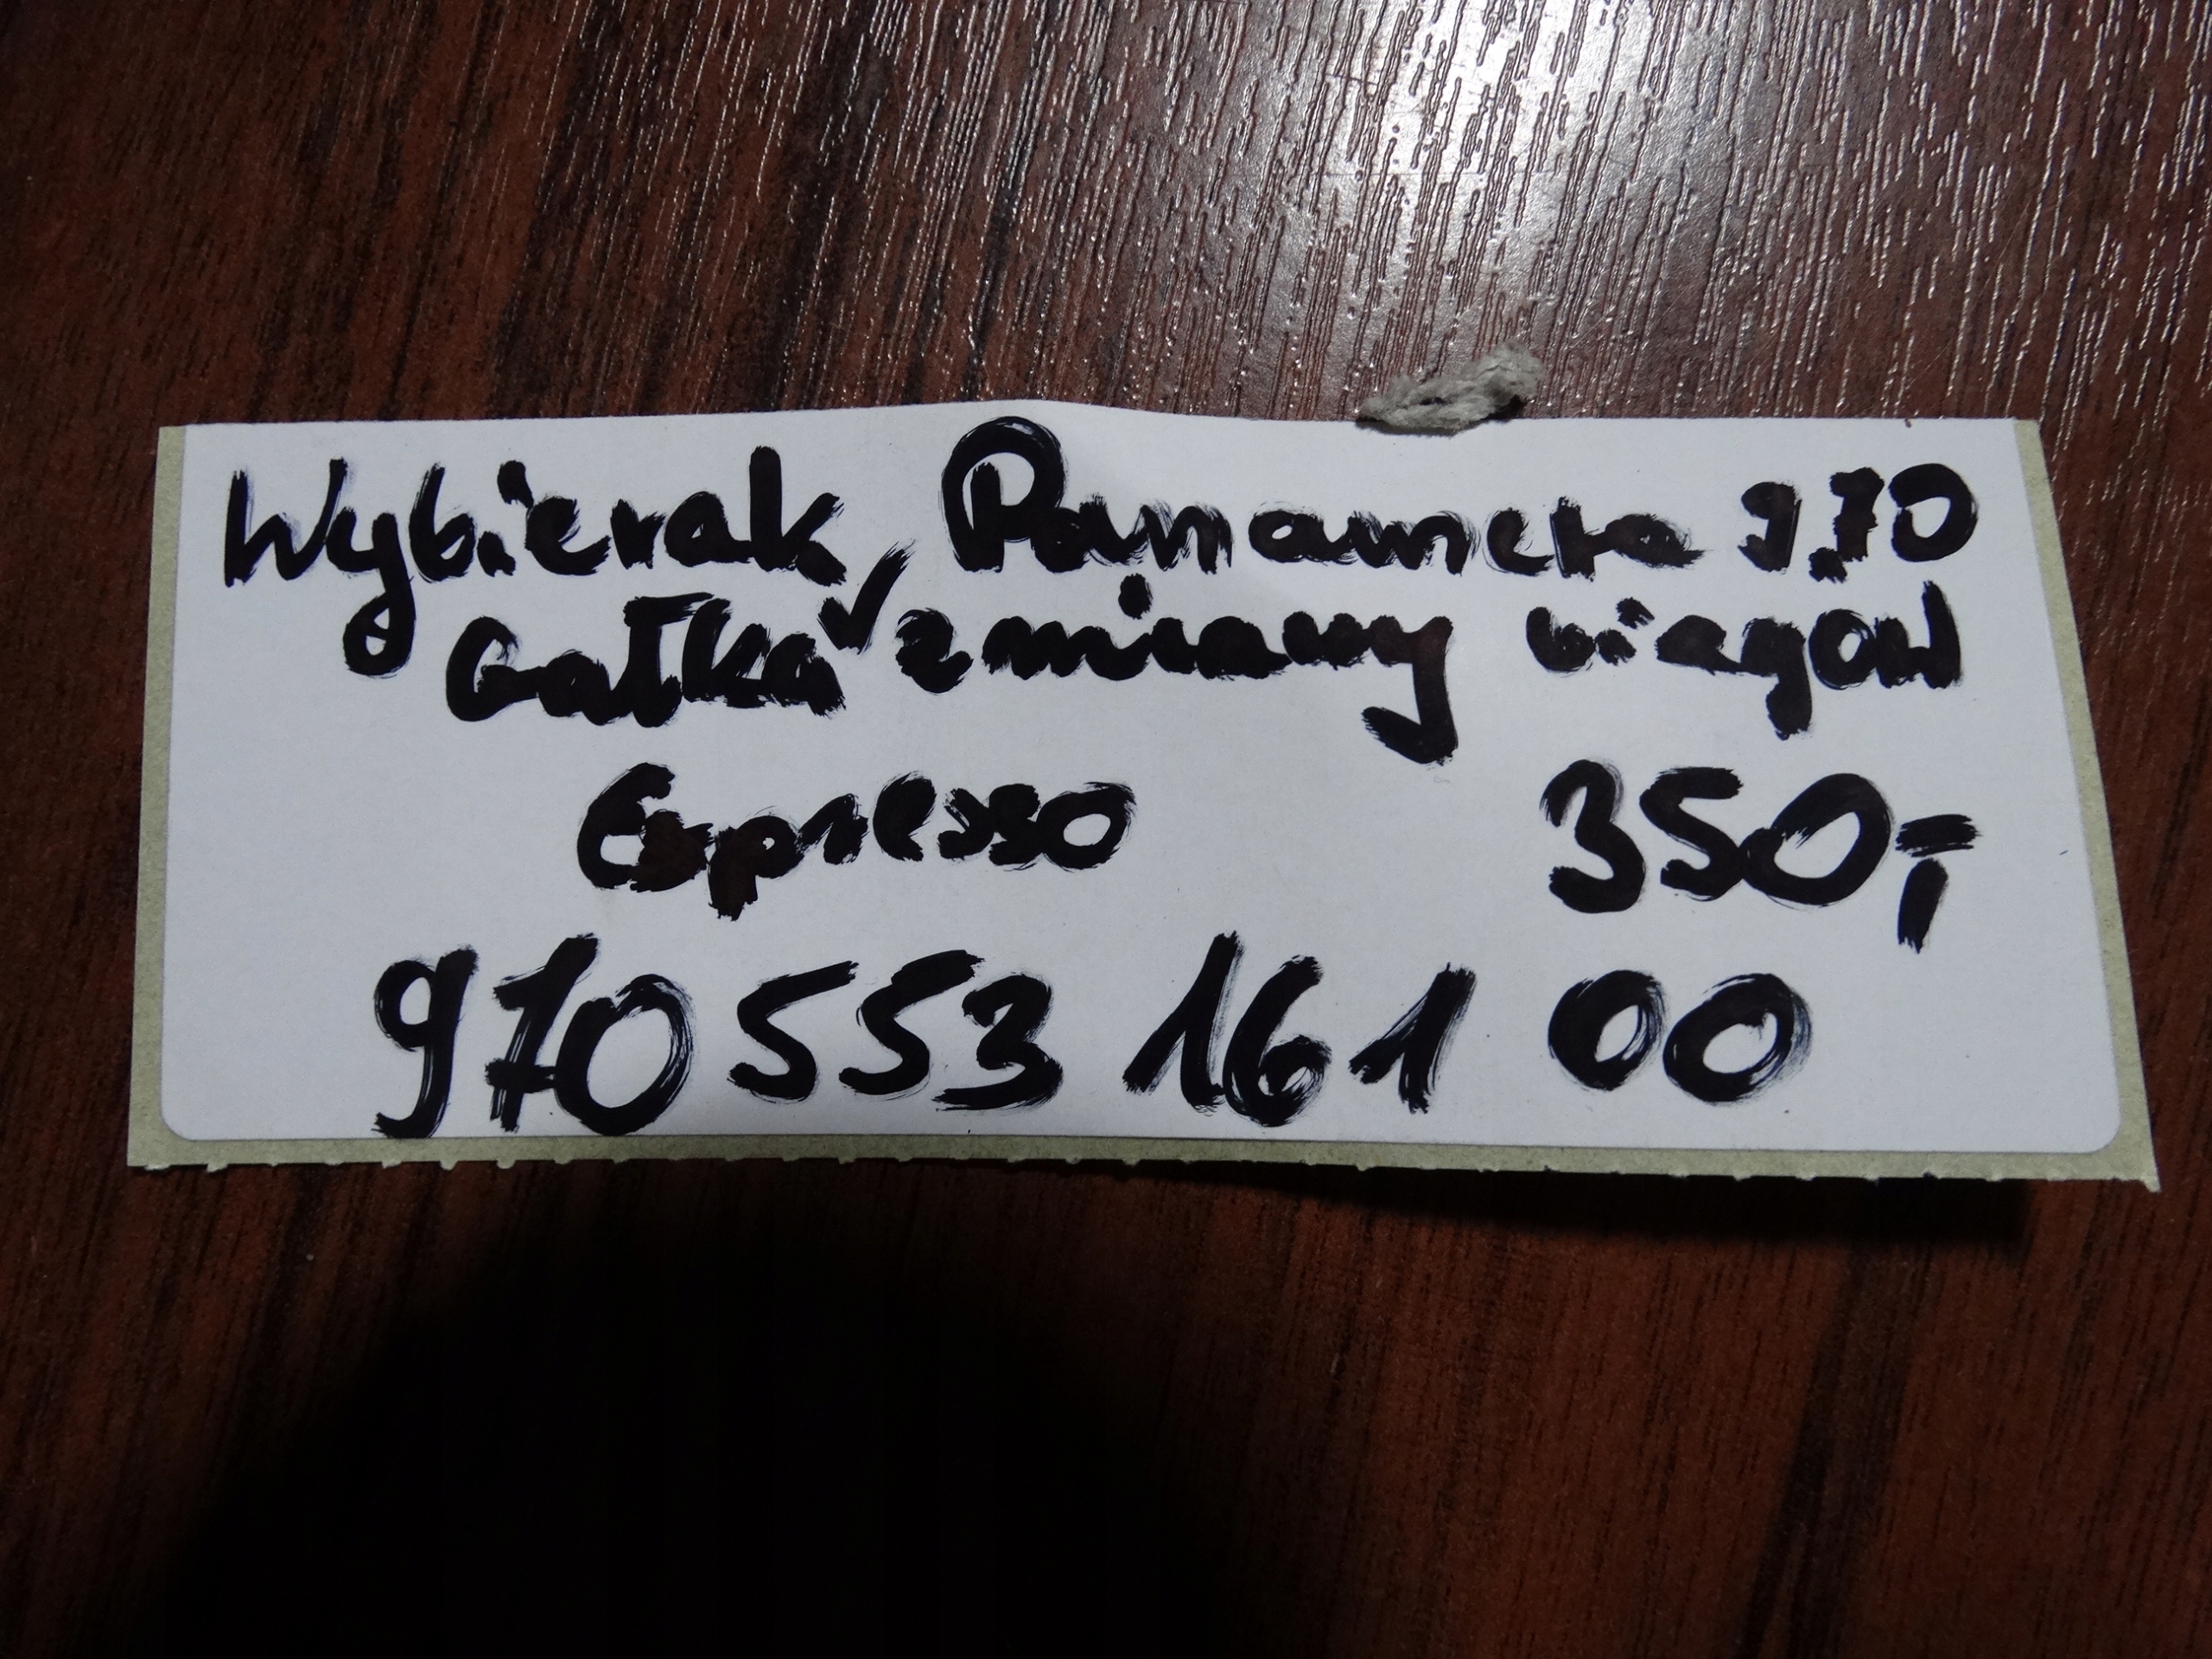 Wybierak Panamera 970
Gałka zmiany biegów
Espresso 350,-
970 553 161 00